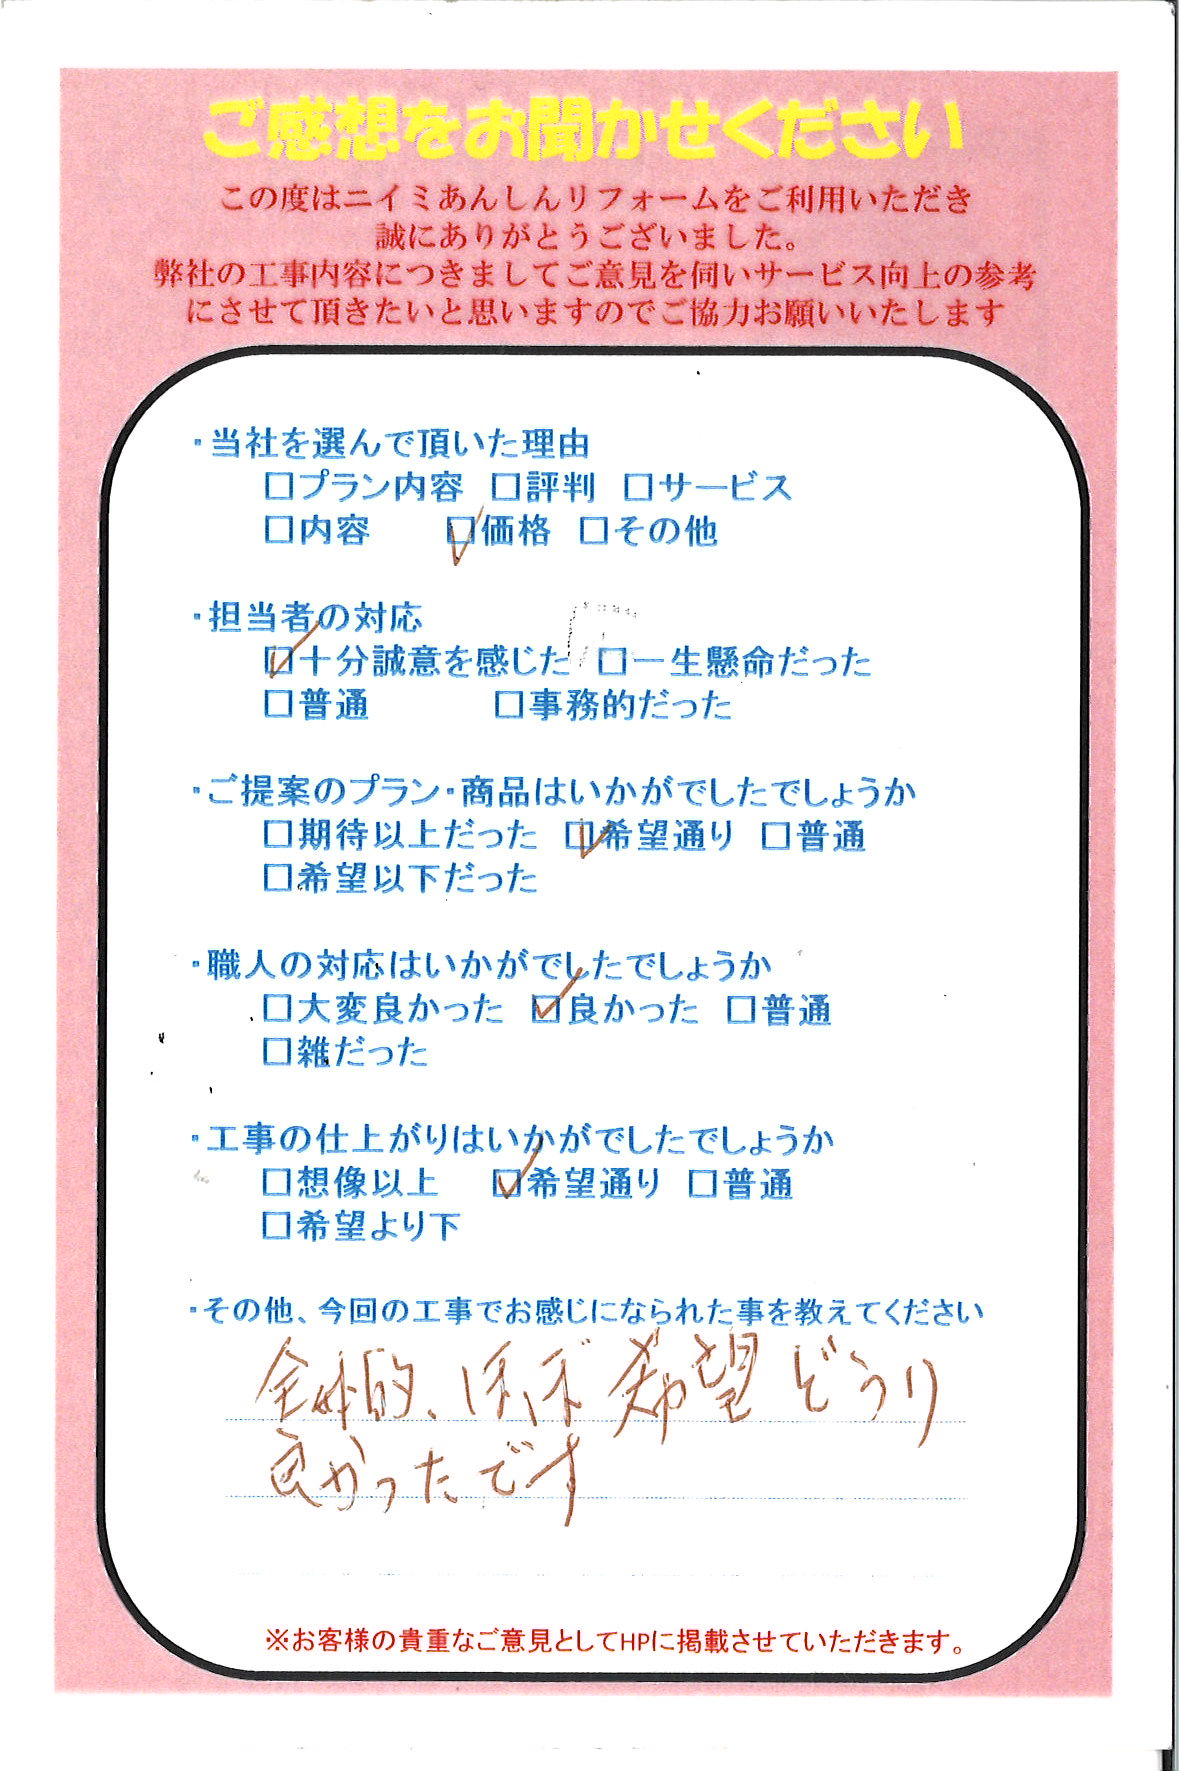 ご感想をお聞かせください
この度はニイミあんしんリフォームをご利用いただき
誠にありがとうございました。
弊社の工事内容につきましてご意見を伺いサービス向上の参考
にさせて頂きたいと思いますのでご協力お願いいたします
・当社を選んで頂いた理由
□プラン内容 □評判 □サービス
□内容 ☑価格 □その他
・担当者の対応
☑十分誠意を感じた □一生懸命だった
□普通 □事務的だった
・ご提案のプラン・商品はいかがでしたでしょうか
□期待以上だった ☑希望通り □普通
□希望以下だった
・職人の対応はいかがでしたでしょうか
□大変良かった ☑良かった □普通
□雑だった
・工事の仕上がりはいかがでしたでしょうか
□想像以上 ☑希望通り □普通
□希望より下
・その他、今回の工事でお感じになられた事を教えてください
全体的、ほぼ希望どうり
良かったです
※お客様の貴重なご意見としてHPに掲載させていただきます。